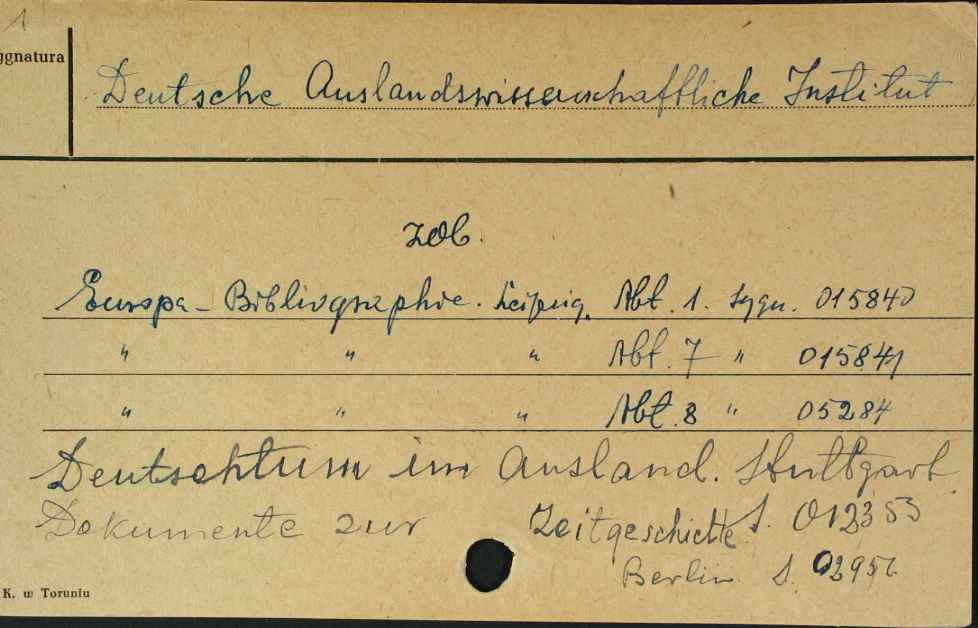 1
ygnatura
Deutsche Auslandswissenschaftliche Institut
zob.
Europa - Bibliographie. Leipzig. Abt. 1. Sygn. 015840
" " " Abt. 7 " 015841
" " " Abt. 8 " 05284
Deutschtum im Ausland. Stuttgart
Dokumente zur Zeitgeschichte S. 012353
Berlin S. 02956
K. w Toruniu